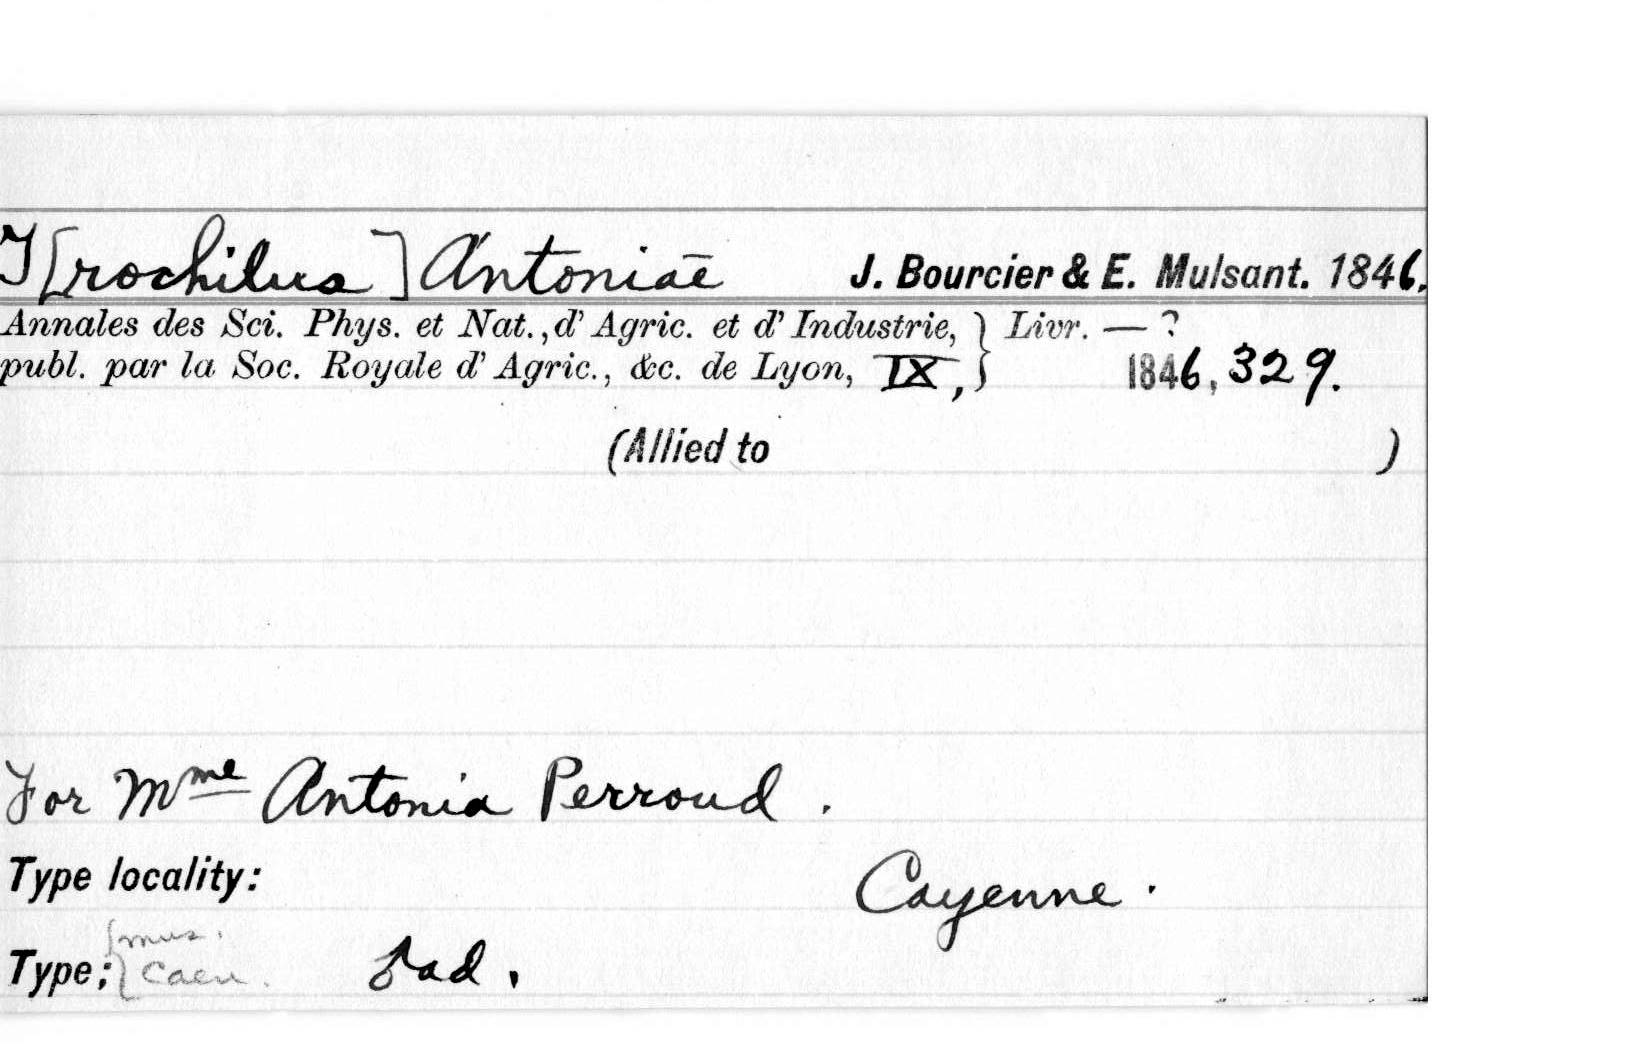 T[rochilus] Antoniae J. Bourcier & E. Mulsant. 1846.
Annales des Sci. Phys. et Nat., d' Agric. et d' Industrie, } Livr. — ?
publ. par la Soc. Royale d' Agric., &c. de Lyon, IX, } 1846, 329.
(Allied to )
For Mme Antonia Perroud.
Type locality: Cayenne.
{mus.
Type; {Caen. ad.